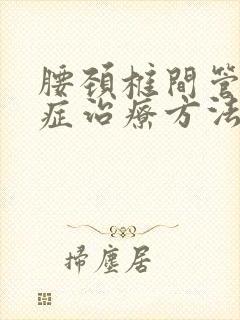 腰颈椎間管
症治療方法
掃塵居